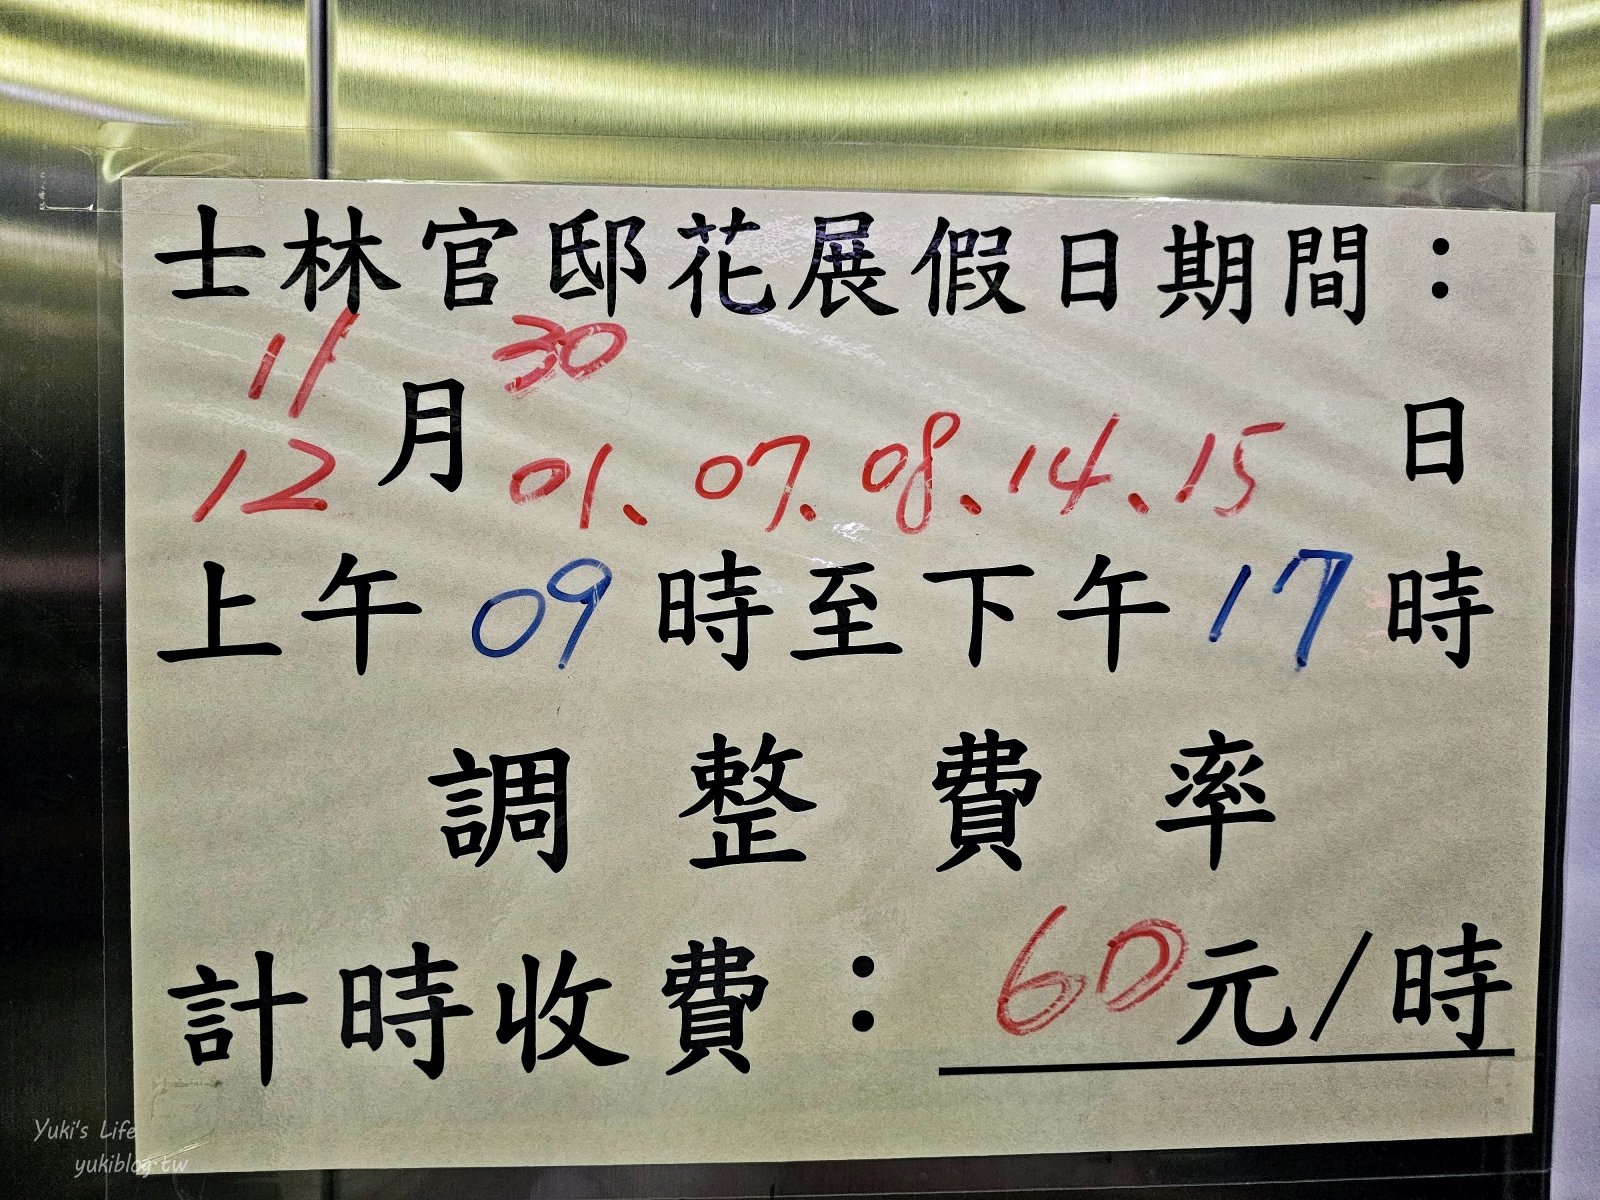 士林官邸花展假日期間：
11 30
月 日
12 01、07、08、14、15
上午09時至下午17時
調整費率
計時收費：60元/時
Yuki's Life
yukiblog.tw